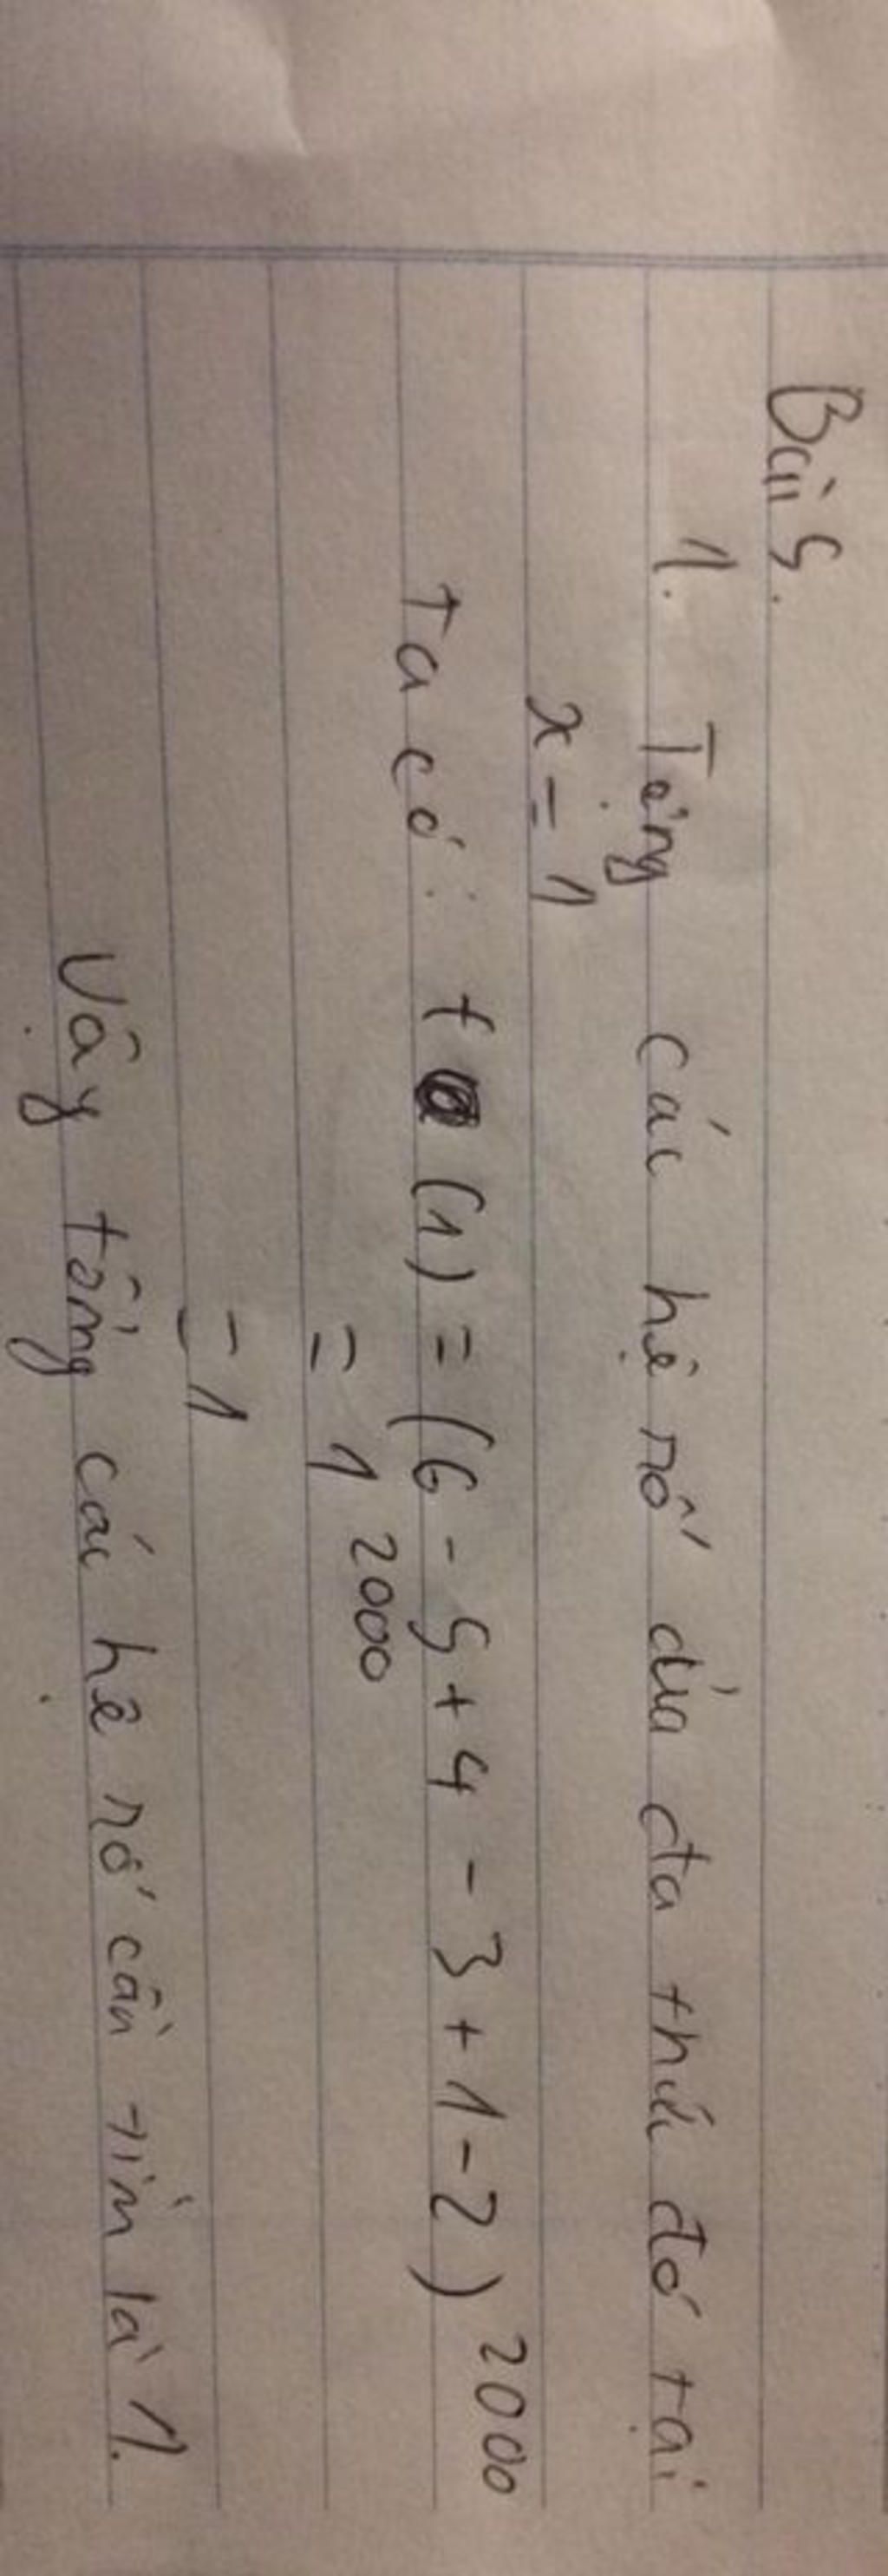 Bài 5.
1. Tổng các hệ số của đa thức đó tại
x = 1
Ta có: f (1) = (6 - 5 + 4 - 3 + 1 - 2)²⁰⁰⁰
= 1²⁰⁰⁰
= 1
Vậy tổng các hệ số cần tìm là 1.